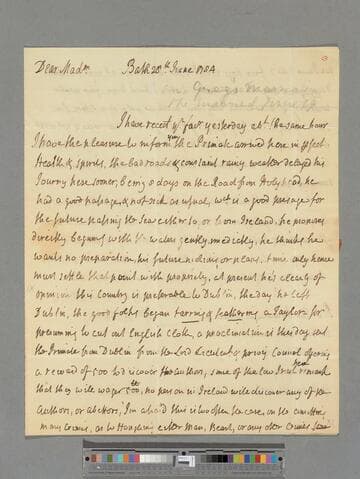 Dear Madm Bath 20th June 1784
I have recd yr favr yesterday abt the same hour
I have the pleasure to inform you the Primate arrived here in perfect
Health & spirits, the bad roads & constant rainy weather delayed his
Journy here sooner, being 8 days on the Road from Holyhead, he
had a good passage, & not sick as usual, wch is a good presage for
the future passing the Sea either to, or from Ireland, he proposes
directly beginning with the waters gently, medically, he thinks he
wants no preparation, his future residence or place, time only hence
must settle that point with propriety, at present he's clearly of
opinion this Country is preferable to Dublin, the day he left
Dublin, the good folks began tarring & feathering a Taylor for
presuming to cut out English Cloth, a proclamation is this day sent
the Primate from Dublin from the Lord Lieutent & privy Council offering
a reward of 500 for the Authors, some of the low Irish remark
that they will wager 500, no person in Ireland will discover any of the
Authors, or abettors, I'm afraid this is too often the case, on the committing
many Crimes, as to Houghing either Man, beast, or any other Crimes